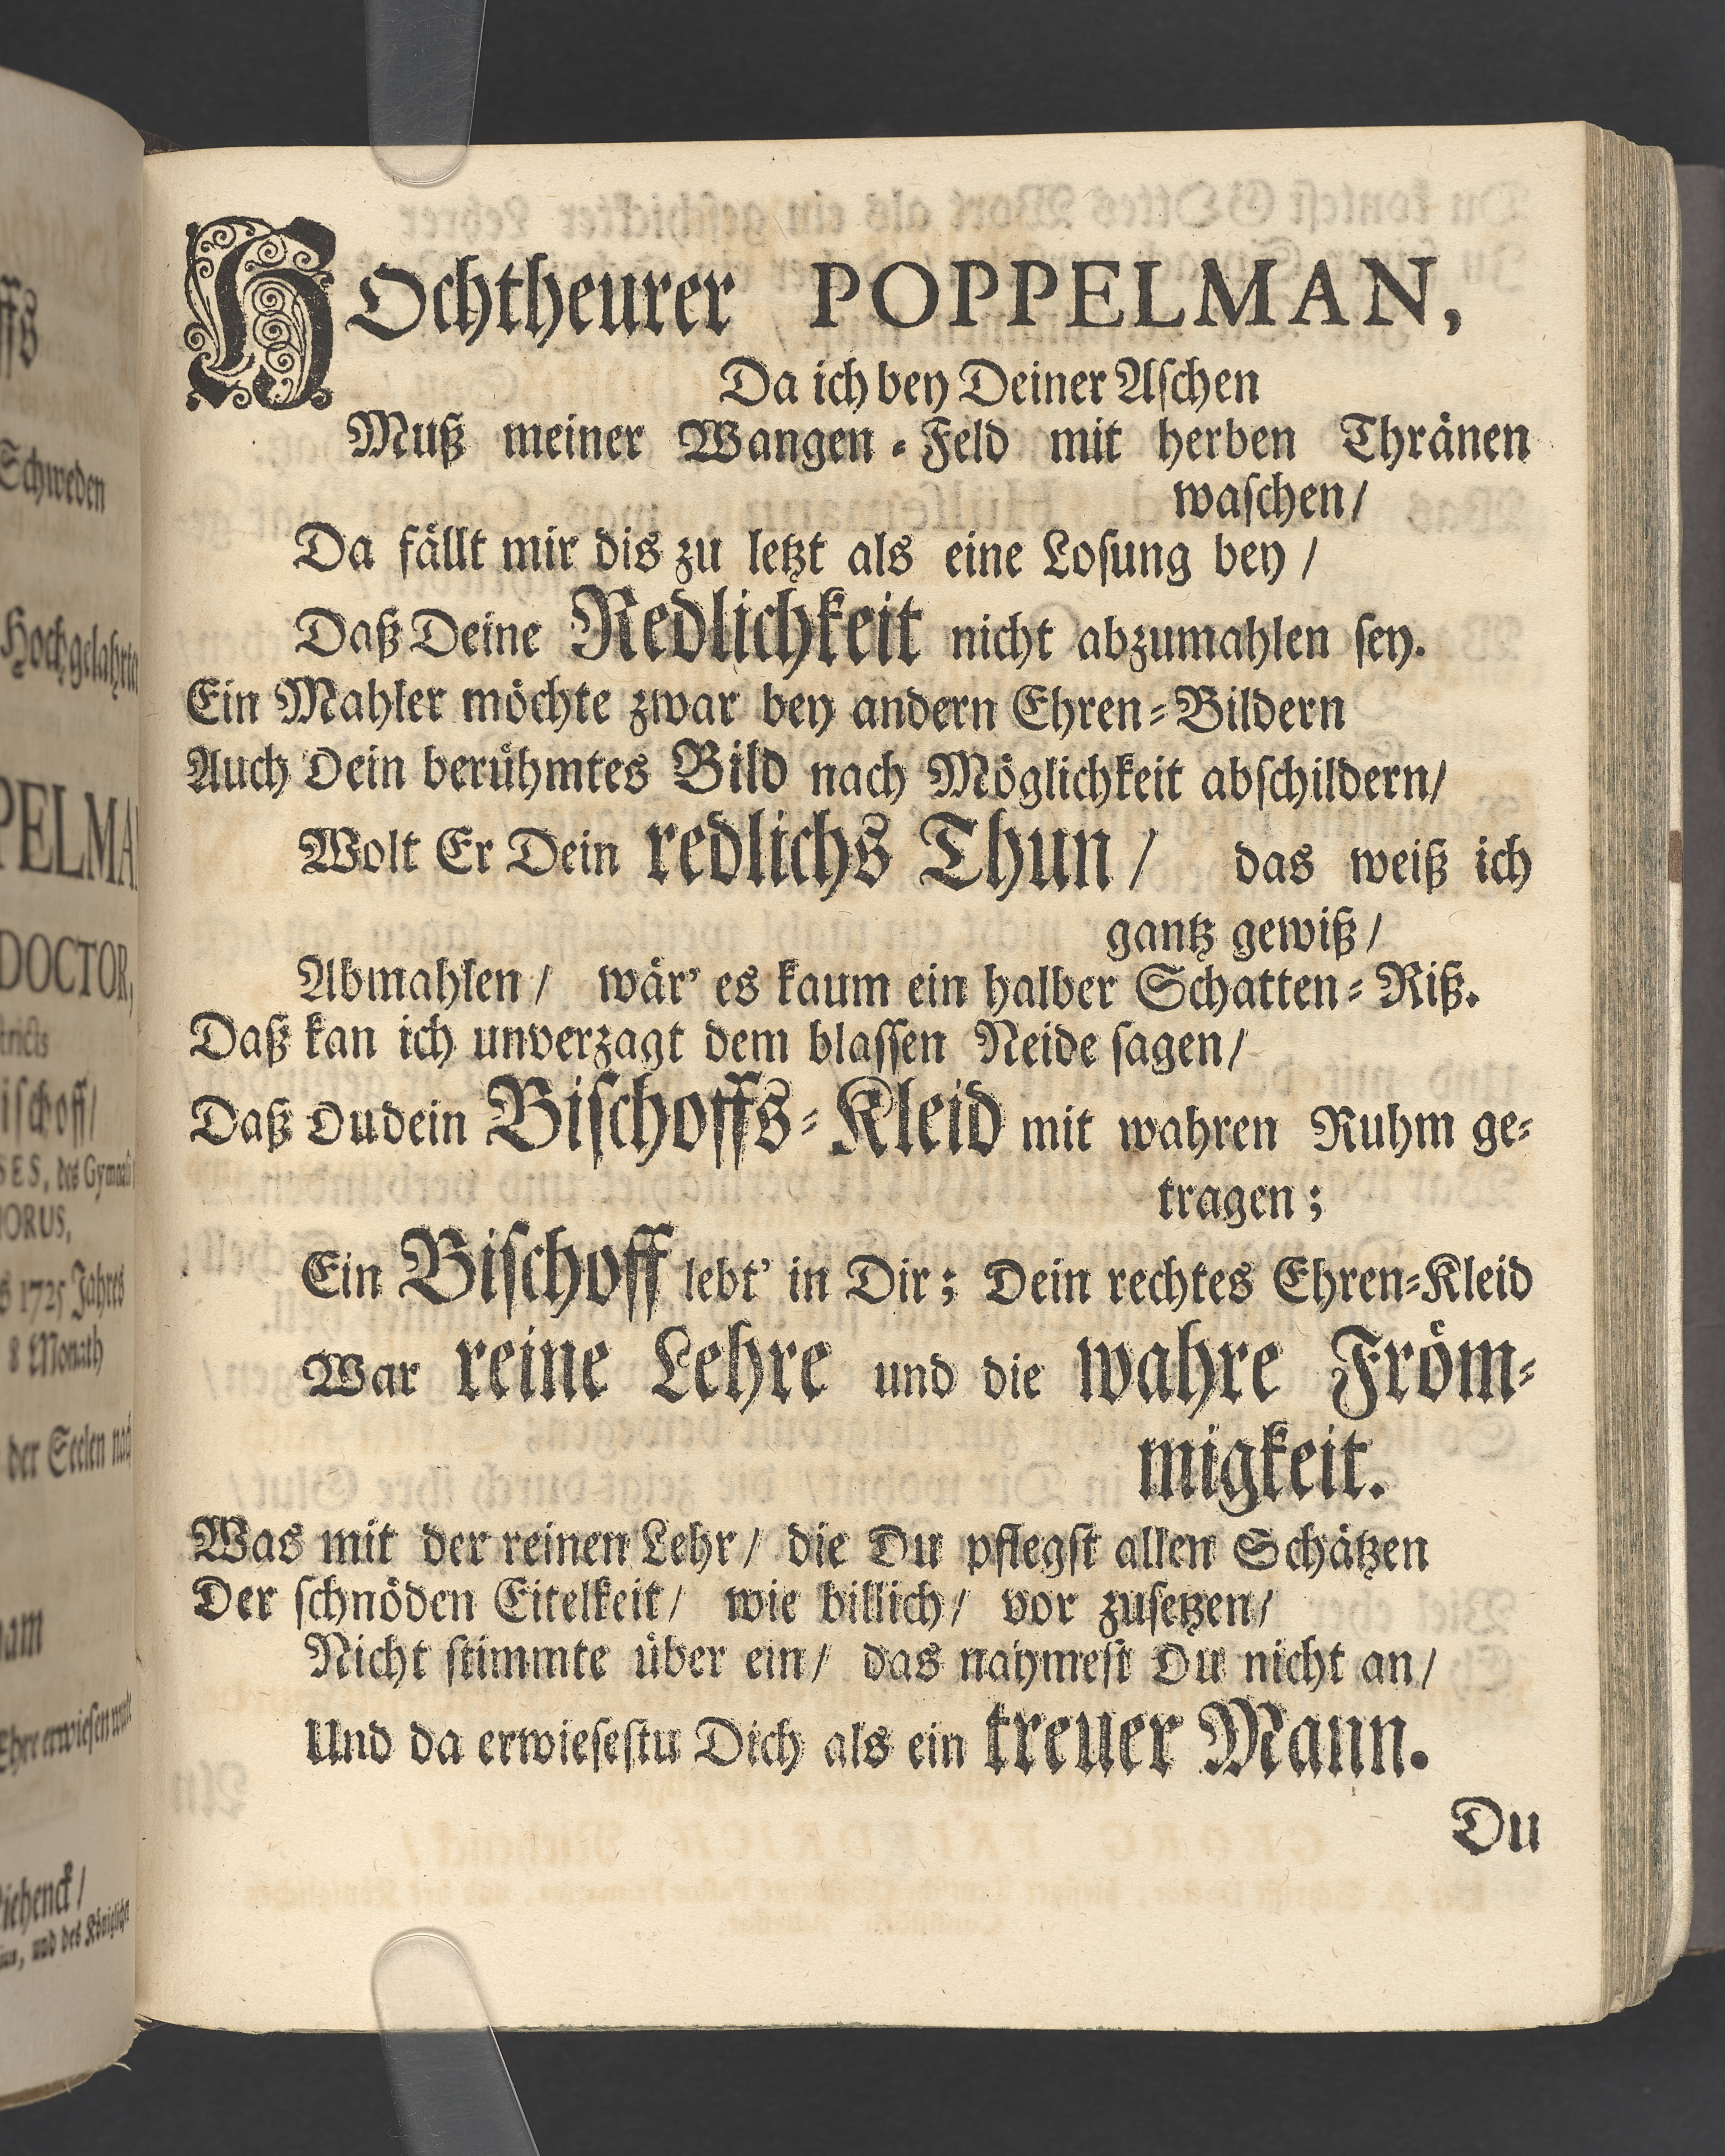 ffs
Schweden
Hochgelahrte
PELMA
DOCTOR,
tricts
ischoff/
SES, des Gymnasii
HORUS,
s 1725 Jahres
8 Monath
der Seelen nach
Ehre erwiesen
Richenck/
und des Königliche
HOchtheurer POPPELMAN,
Da ich bey Deiner Aſchen
Muß meiner Wangen-Feld mit herben Thränen
waſchen/
Da fällt mir dis zu letzt als eine Loſung bey/
Daß Deine Redlichkeit nicht abzumahlen ſey.
Ein Mahler möchte zwar bey andern Ehren-Bildern
Auch Dein berühmtes Bild nach Möglichkeit abſchildern/
Wolt Er Dein redlichs Thun/ das weiß ich
gantz gewiß/
Abmahlen/ wär' es kaum ein halber Schatten-Riß.
Daß kan ich unverzagt dem blaſſen Neide ſagen/
Daß Du dein Biſchoffs-Kleid mit wahren Ruhm ge-
tragen;
Ein Biſchoff lebt' in Dir; Dein rechtes Ehren-Kleid
War reine Lehre und die wahre Fröm-
migkeit.
Was mit der reinen Lehr/ die Du pflegſt allen Schätzen
Der ſchnöden Eitelkeit/ wie billich/ vor zuſetzen/
Nicht ſtimmte über ein/ das nahmeſt Du nicht an/
Und da erwieſeſtu Dich als ein treuer Mann.
Du